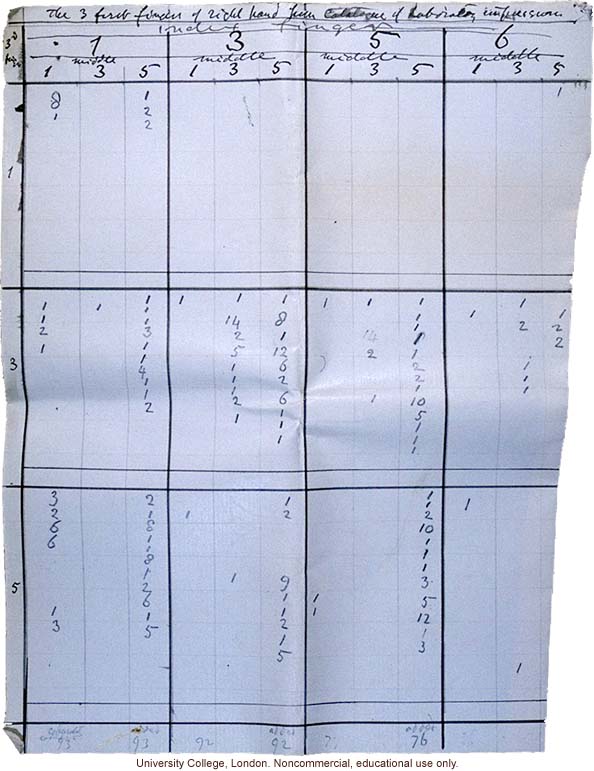 The 3 first fingers of right hand from Catalogue of Laboratory impressions
index finger
3rd
1 3 5 6
middle middle middle middle
1 3 5 1 3 5 1 3 5 1 3 5
8 1 1
1 2
2
1
1 1 1 1 1 1 1 1 1 1 1
1 1 14 8 1 1
2 3 2 1 14 1 2 2
1 1 5 12 2 1 2
3
4 1 6 2 1
1 1 2 2 1
1 2 6 1 10 1
2 1 1 5
1 1
1
3 2 1 1 1
2 1 1 2 2
6 8 10
6 1 1
8 1
1 1 9 3
5
2 1 1 5
6 1 1 12
1 1 2 1
3 5 1 3
5
1
93 93 92 92 76
University College, London. Noncommercial, educational use only.